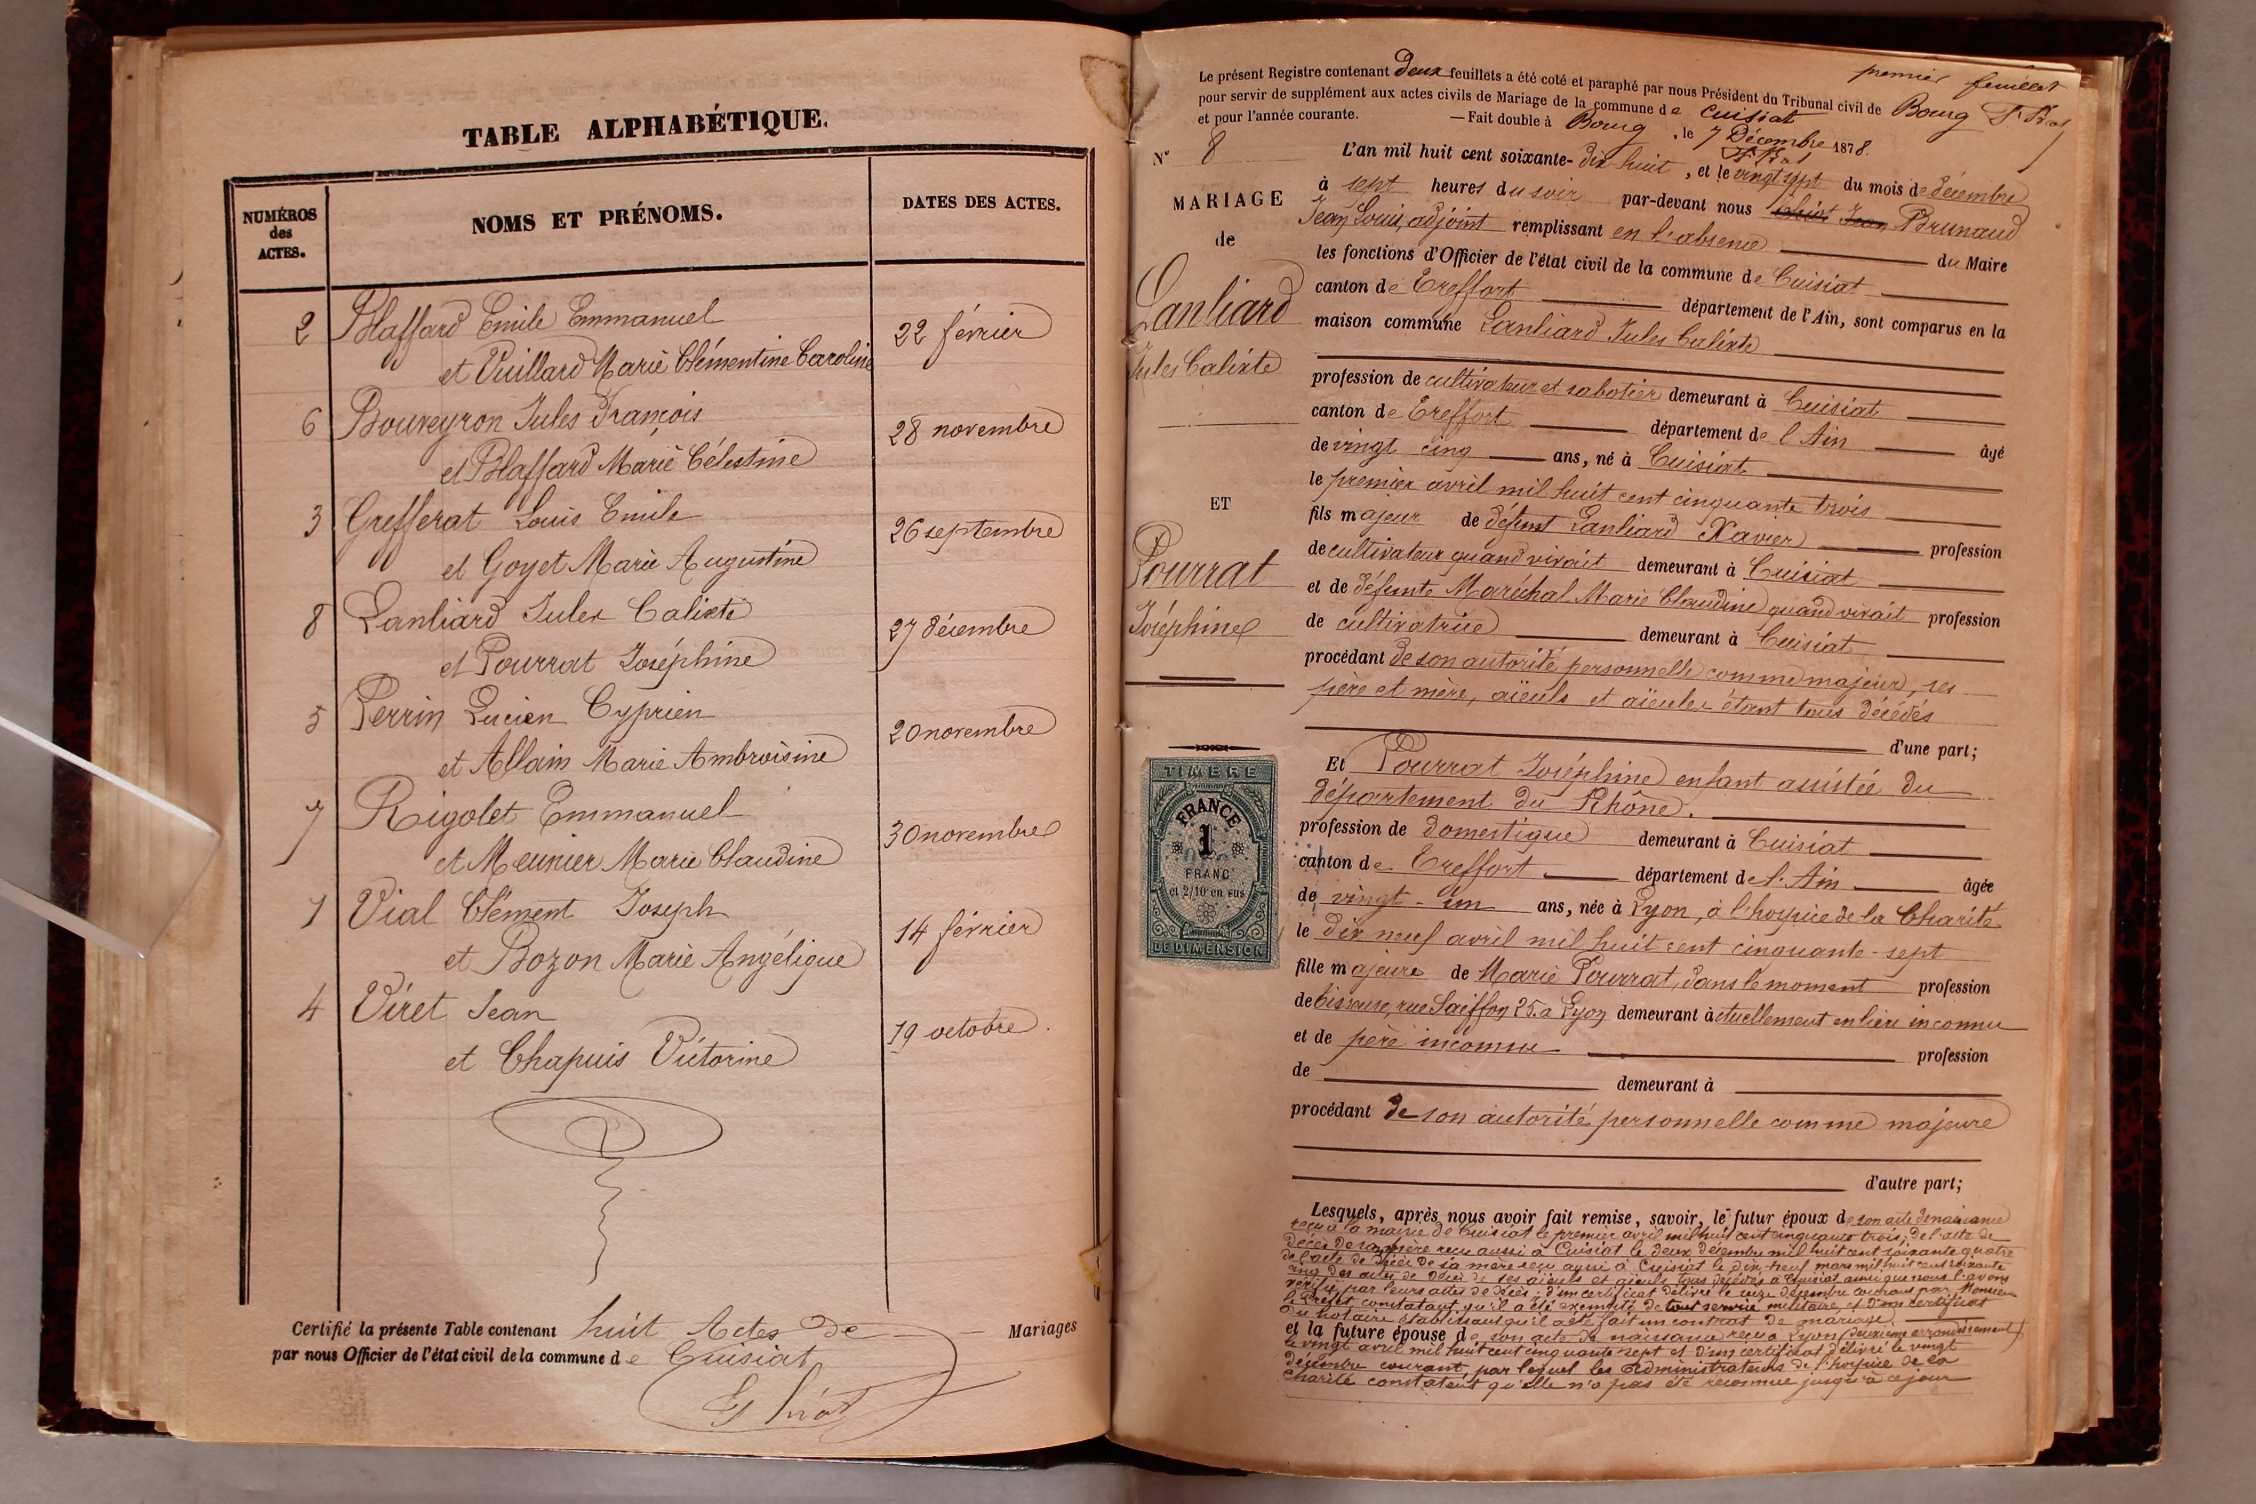 TABLE ALPHABÉTIQUE.
NUMÉROS des ACTES.
NOMS ET PRÉNOMS.
DATES DES ACTES.
2 Blaffard Emile Emmanuel
et Vuillard Marie Clémentine Caroline 22 février
6 Bouveyron Jules François
et Blaffard Marie Célestine 28 novembre
3 Grefferat Louis Emile
et Goyet Marie Augustine 26 septembre
8 Lanliard Jules Calixte
et Pourrat Joséphine 27 décembre
5 Perrin Lucien Cyprien
et Allain Marie Ambroisine 20 novembre
7 Rigolet Emmanuel
et Meunier Marie Claudine 30 novembre
1 Vial Clément Joseph
et Bozon Marie Angélique 14 février
4 Viret Jean
et Chapuis Victorine 19 octobre.
Certifié la présente Table contenant huit Actes de Mariages
par nous Officier de l'état civil de la commune de Cuisiat
premier feuillet
Le présent Registre contenant deux feuillets a été coté et paraphé par nous Président du Tribunal civil de Bourg
pour servir de supplément aux actes civils de Mariage de la commune de Cuisiat
et pour l'année courante. — Fait double à Bourg, le 7 Décembre 1878.
N° 8
MARIAGE
de
Lanliard
Jules Calixte
ET
Pourrat
Joséphine
TIMBRE
FRANCE
1
FRANC
et 2/10 en sus
DE DIMENSION
L'an mil huit cent soixante-dix huit, et le vingt sept du mois de décembre
à sept heures du soir par-devant nous Brunaud
Jean Louis, adjoint remplissant en l'absence du Maire
les fonctions d'Officier de l'état civil de la commune de Cuisiat
canton de Treffort département de l'Ain, sont comparus en la
maison commune Lanliard Jules Calixte
profession de cultivateur et sabotier demeurant à Cuisiat
canton de Treffort département de l'Ain âgé
de vingt cinq ans, né à Cuisiat
le premier avril mil huit cent cinquante trois
fils majeur de défunt Lanliard Xavier profession
de cultivateur quand vivait demeurant à Cuisiat
et de défunte Maréchal Marie Claudine quand vivait profession
de cultivatrice demeurant à Cuisiat
procédant de son autorité personnelle comme majeur, ses
père et mère, aïeuls et aïeules étant tous décédés
d'une part;
Et Pourrat Joséphine enfant assistée du
département du Rhône.
profession de domestique demeurant à Cuisiat
canton de Treffort département de l'Ain âgée
de vingt-un ans, née à Lyon, à l'hospice de la Charité
le dix neuf avril mil huit cent cinquante-sept
fille majeure de Marie Pourrat, dans le moment profession
de tisseuse, rue 25. a Lyon demeurant actuellement en lieu inconnu
et de père inconnu profession
de demeurant à
procédant de son autorité personnelle comme majeure
d'autre part;
Lesquels, après nous avoir fait remise, savoir, le futur époux de son acte de naissance
reçu à la mairie de Cuisiat le premier avril mil huit cent cinquante trois, de l'acte de
décès de son père reçu aussi à Cuisiat le deux décembre mil huit cent soixante quatre
de l'acte de décès de sa mère reçu aussi à Cuisiat le dix-neuf mars mil huit cent soixante
cinq des actes de décès de ses aïeuls et aïeules tous décédés à Cuisiat ainsi que nous l'avons
vérifié par leurs actes de décès; d'un certificat délivré le onze décembre courant par Monsieur
le Préfet constatant qu'il a été exempté de tout service militaire, et d'un certificat
du notaire établissant qu'il a été fait un contrat de mariage.
et la future épouse de son acte de naissance reçu à Lyon (deuxième arrondissement)
le vingt avril mil huit cent cinquante-sept et d'un certificat délivré le vingt
décembre courant, par lequel les administrateurs de l'hospice de la
charité constatent qu'elle n'a pas été reconnue jusqu'à ce jour